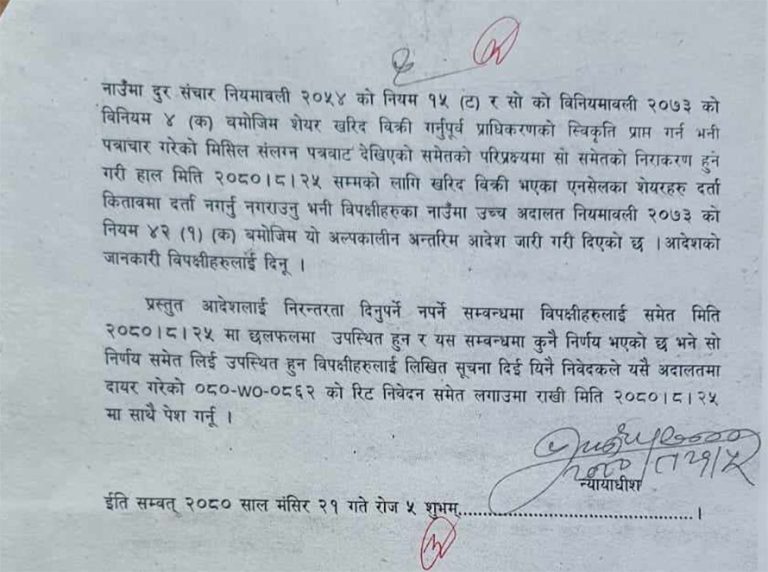 नाउँमा दुर संचार नियमावली २०५४ को नियम १५ (ट) र सो को विनियमावली २०७३ को
विनियम ४ (क) बमोजिम शेयर खरिद विक्री गर्नुपूर्व प्राधिकरणको स्विकृति प्राप्त गर्न भनी
पत्राचार गरेको मिसिल संलग्न पत्रवाट देखिएको समेतको परिप्रक्ष्यमा सो समेतको निराकरण हुने
गरी हाल मिति २०८०।८।२५ सम्मको लागि खरिद विक्री भएका एनसेलका शेयरहरु दर्ता
कितावमा दर्ता नगर्नु नगराउनु भनी विपक्षीहरुका नाउँमा उच्च अदालत नियमावली २०७३ को
नियम ४२ (१) (क) बमोजिम यो अल्पकालीन अन्तरिम आदेश जारी गरी दिएको छ । आदेशको
जानकारी विपक्षीहरुलाई दिनू ।
प्रस्तुत आदेशलाई निरन्तरता दिनुपर्ने नपर्ने सम्वन्धमा विपक्षीहरुलाई समेत मिति
२०८०।८।२५ मा छलफलमा उपस्थित हुन र यस सम्वन्धमा कुनै निर्णय भएको छ भने सो
निर्णय समेत लिई उपस्थित हुन विपक्षीहरुलाई लिखित सूचना दिई यिनै निवेदकले यसै अदालतमा
दायर गरेको ०८०-WO-०८६२ को रिट निवेदन समेत लगाउमा राखी मिति २०८०।८।२५
मा साथै पेश गर्नू ।
न्यायाधीश
ईति सम्वत् २०८० साल मंसिर २१ गते रोज ५ शुभम्.............................................।